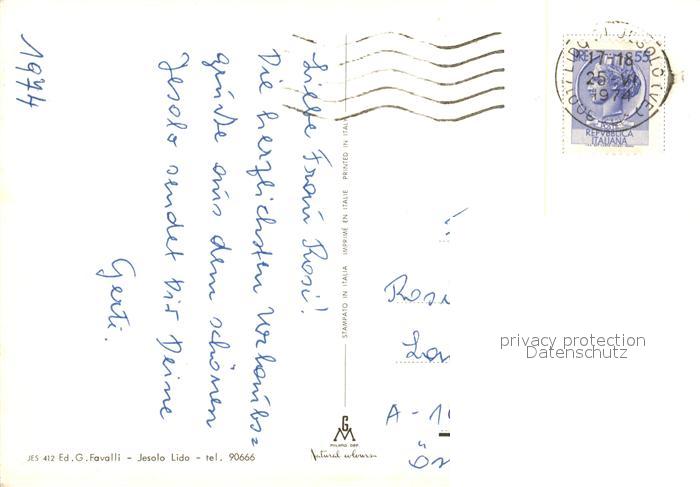 1974
Liebe Frau Rosi!
Die herzlichsten Urlaubs=
grüße aus dem schönen
Jesolo sendet Dir Deine
Gerti.
STAMPATO IN ITALIA IMPRIMÉ EN ITALIE PRINTED IN ITAL
17-18
25-VI
1974
30017 LIDO DI JESOLO (VE)
55
REPVBBLICA
ITALIANA
Rosi
A-1
privacy protection
Datenschutz
G
M
MILANO DEP.
Natural colours
JES 412 Ed. G. Favalli - Jesolo Lido - tel. 90666